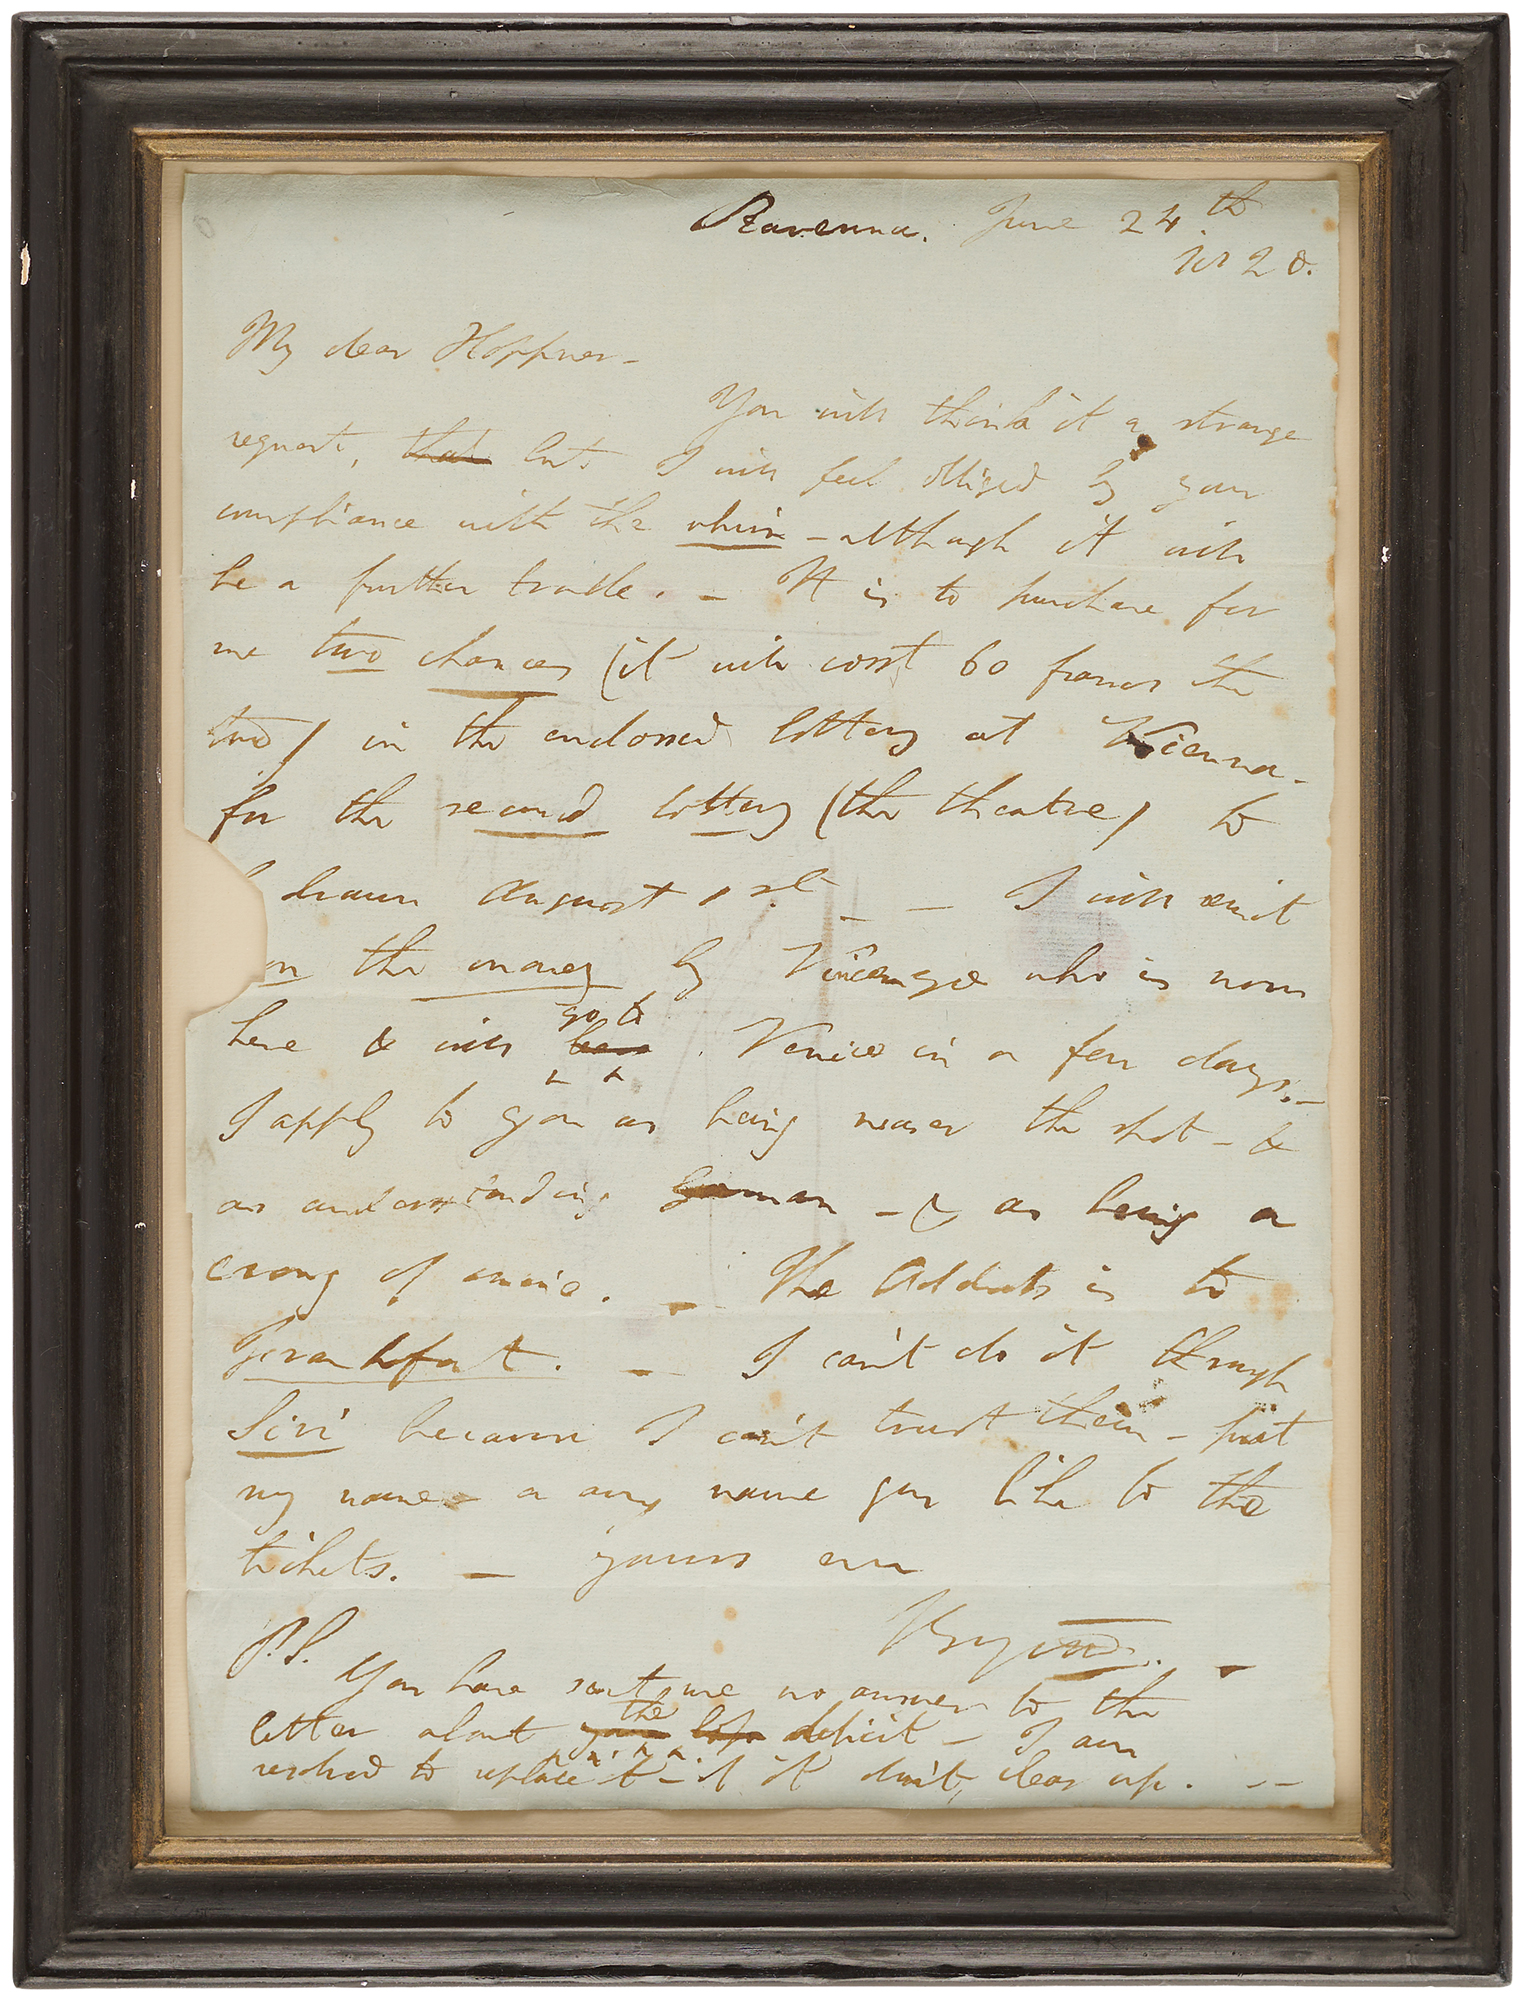 Ravenna. June 24.th
1820.
My dear Hoppner –
You will think it a strange
request, that but I will feel obliged by your
compliance with the whim – although it will
be a further trouble. – It is to purchase for
me two chances (it will cost 60 francs the
two) in the enclosed lottery at Vienna –
for the second lottery (the theatre) to
drawn August 1st. – – I will remit
the money by Vincenzo who is now
here & will go to Venice in a few days. –
I apply to you as being nearer the spot – &
as understanding German – & as being a
crony of mine. – The Address is to
Frankfort. – I can't do it through
Siri because I can't trust them – put
my name – or any name you like to the
tickets. – yours ever
Byron. –
P.S.
You have sent me no answer to the
letter about your the loss deficit – I am
resolved to replace it – if it don't clear up. – –